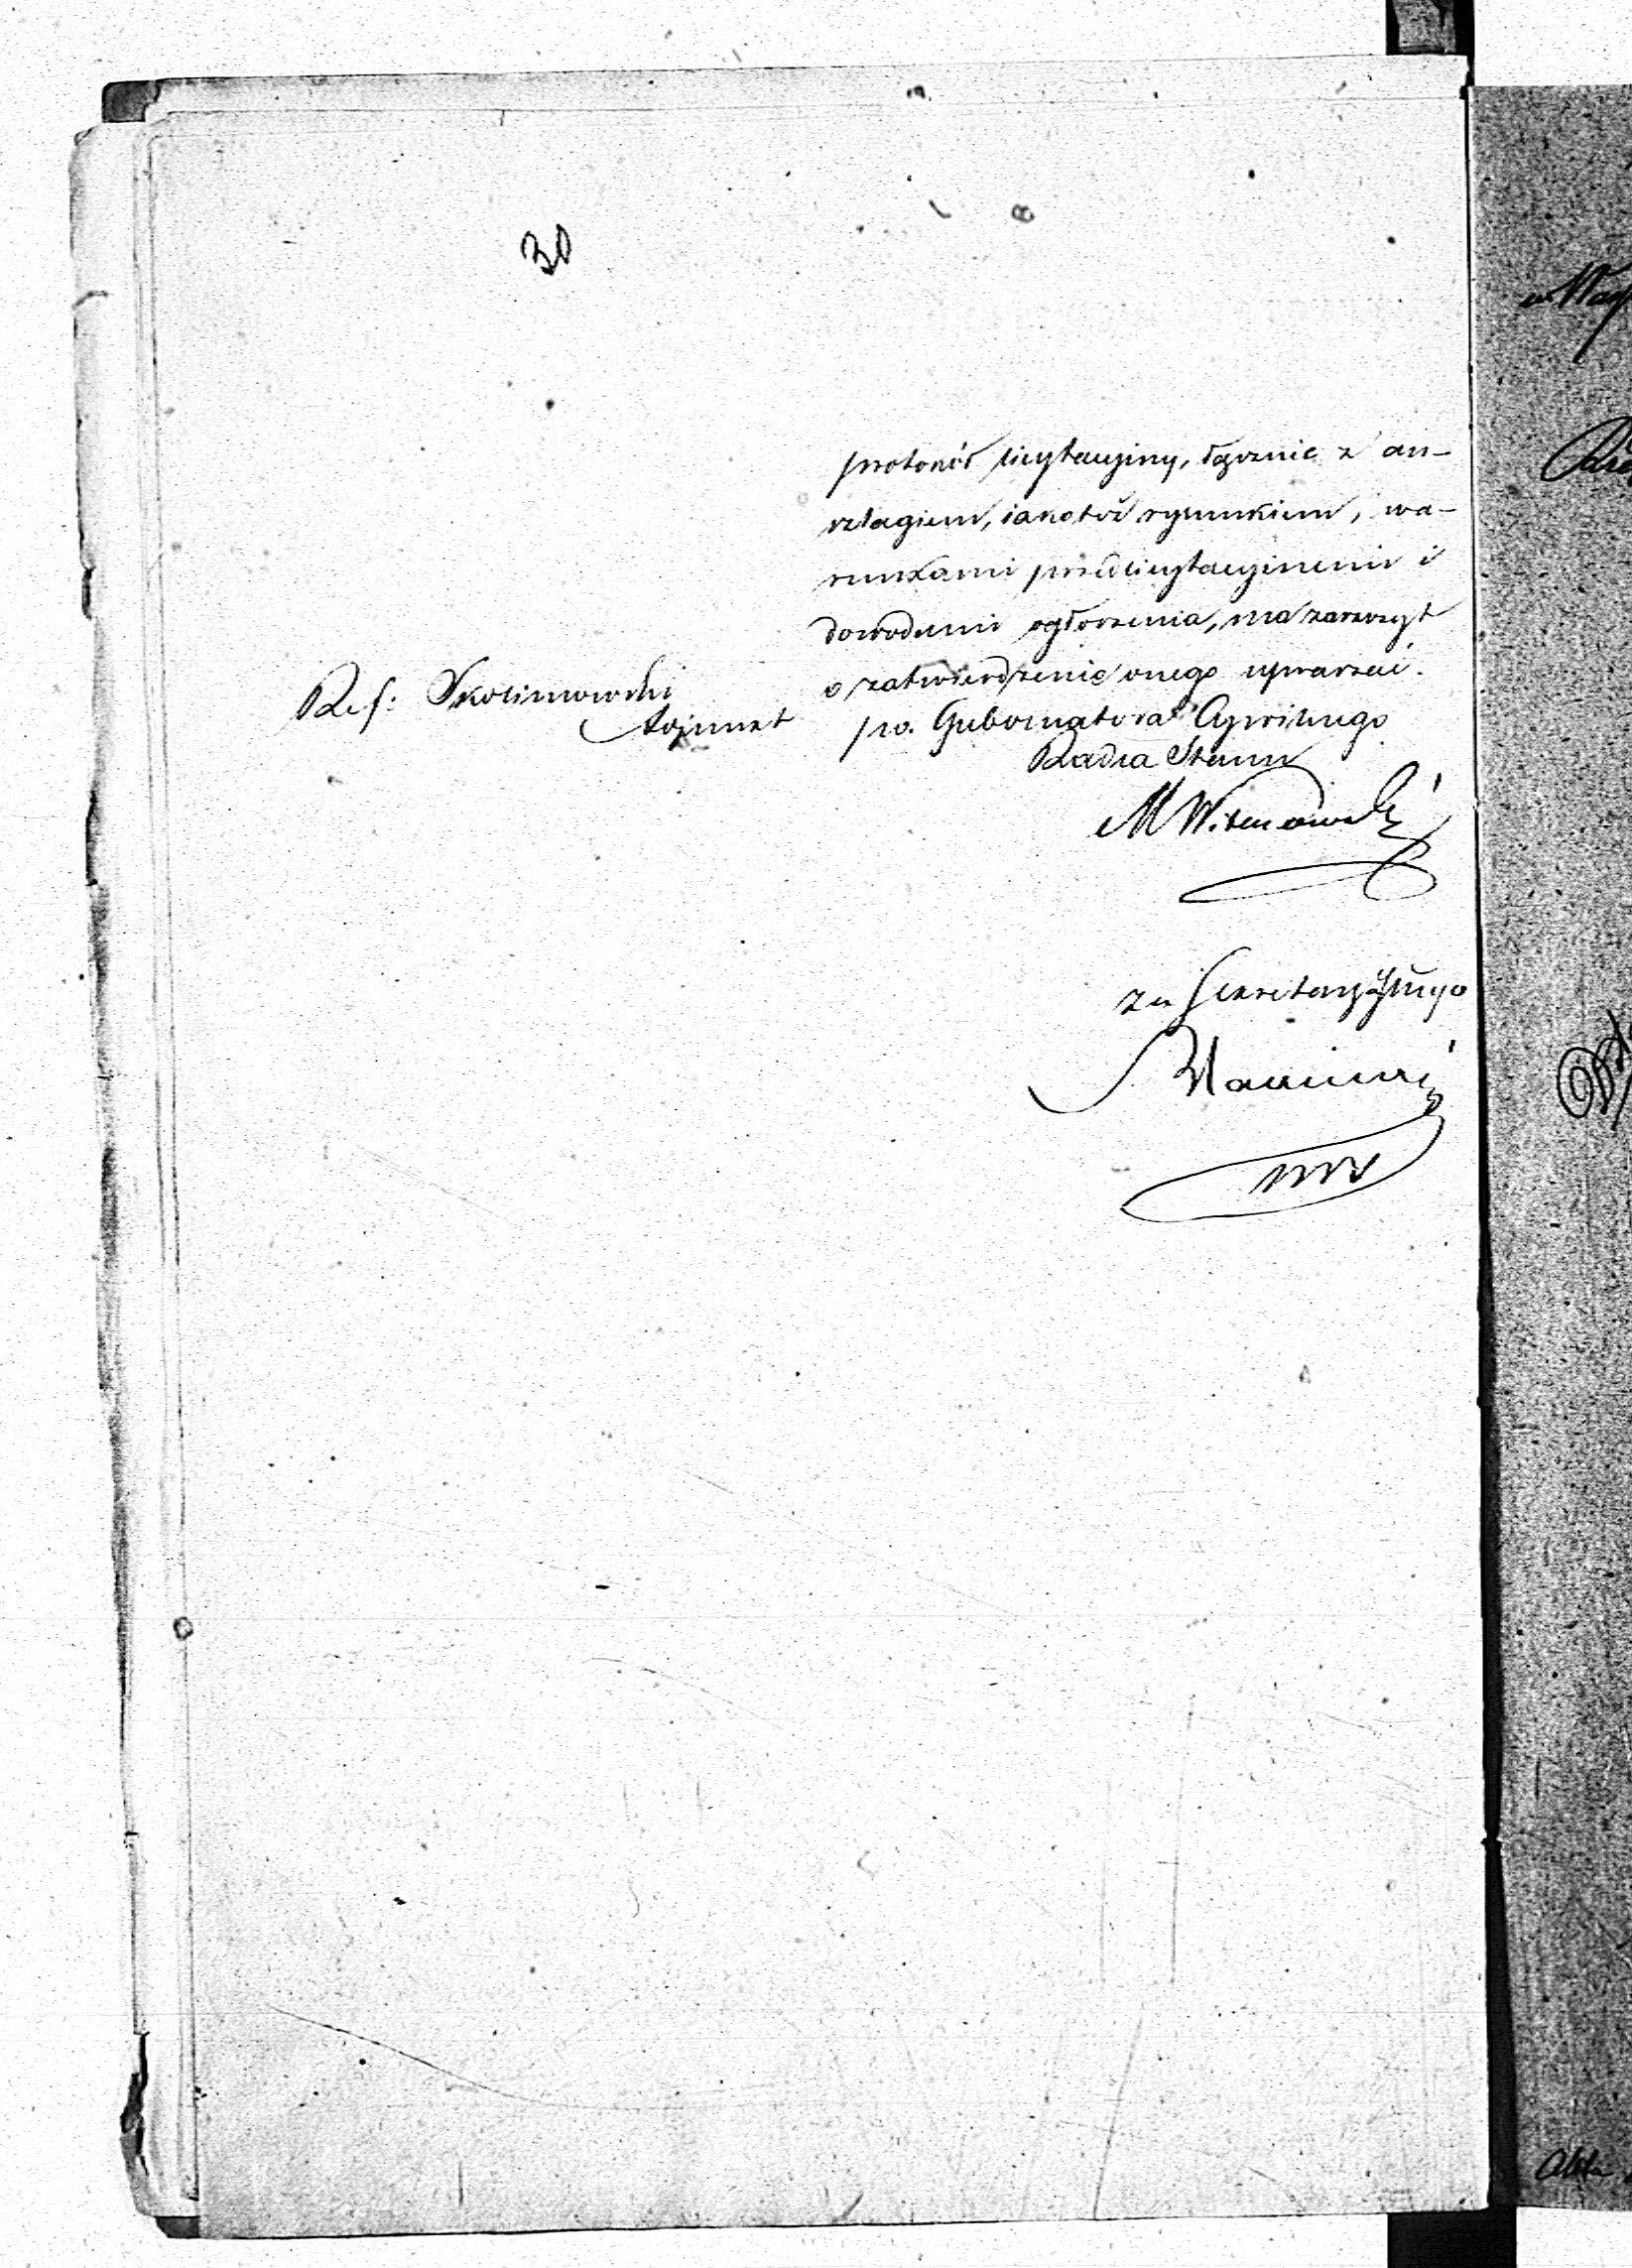 30
protokół licytacyiny, łącznie z an-
szlagiem, iakoteż rysunkiem, wa-
runkami przedlicytacyinemi i
dowodami ogłoszenia, ma zaszczyt
o zatwierdzenie onego upraszać.
Ref: Skolimowski
Adjunkt
po. Gubernatora Cywilnego
Radca Stanu
M
za Sekretarza